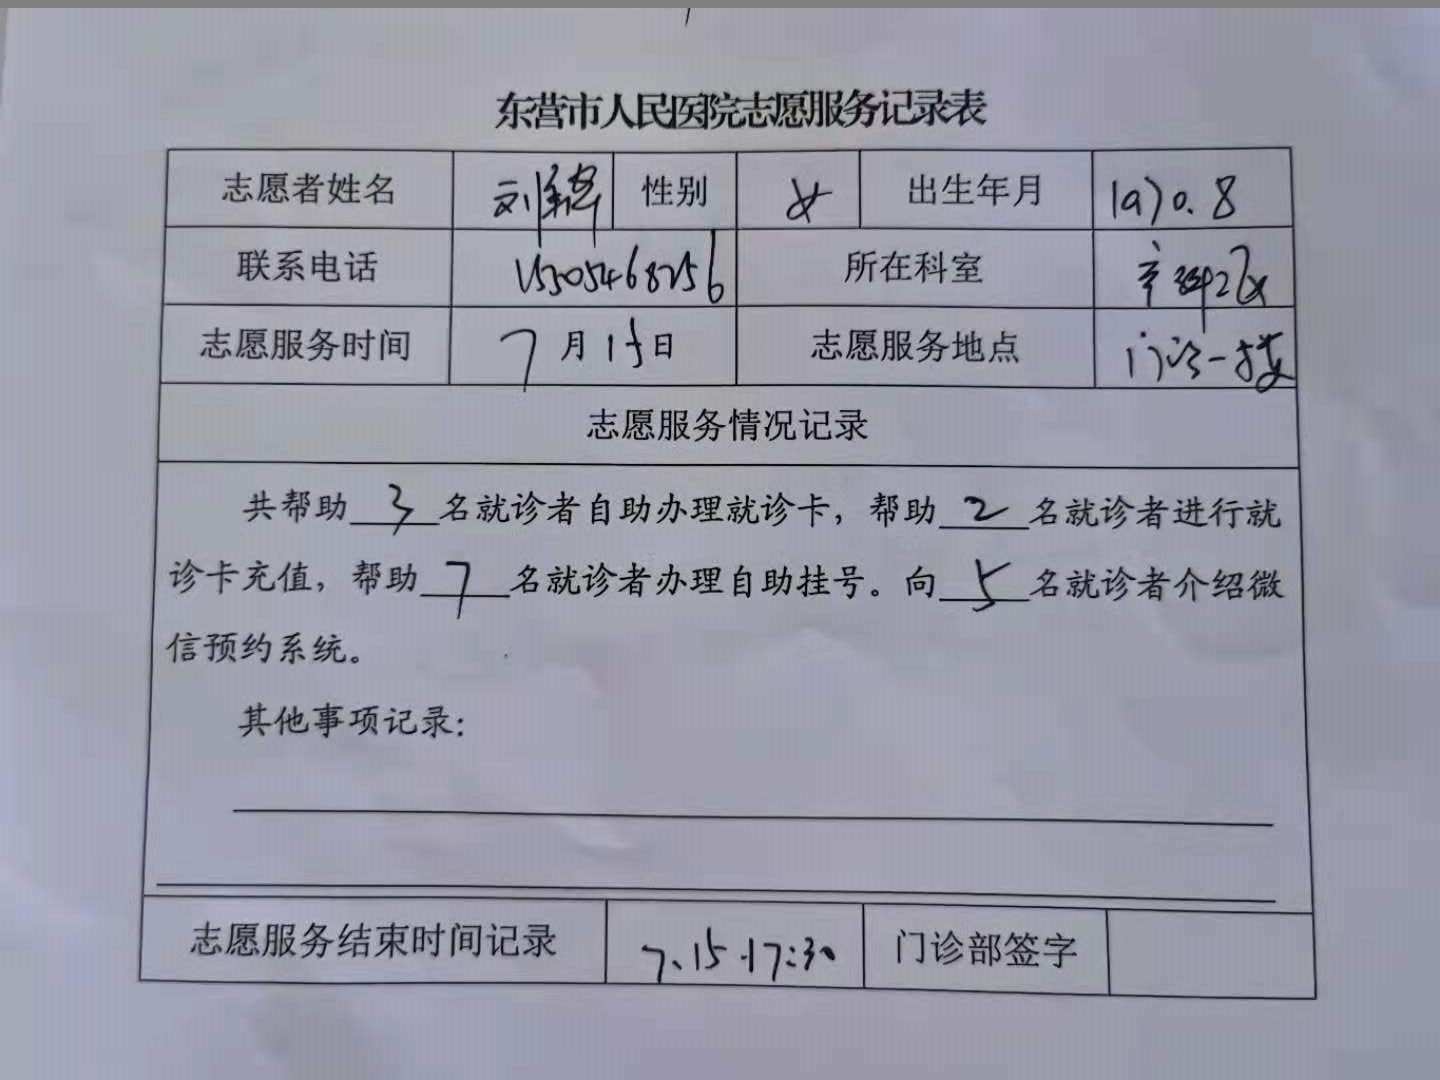 东营市人民医院志愿服务记录表
志愿者姓名 刘 性别 女 出生年月 1970.8
联系电话 15505468256 所在科室
志愿服务时间 7月15日 志愿服务地点 门诊一楼
志愿服务情况记录
共帮助3名就诊者自助办理就诊卡，帮助2名就诊者进行就
诊卡充值，帮助7名就诊者办理自助挂号。向5名就诊者介绍微
信预约系统。
其他事项记录:
志愿服务结束时间记录 7.15.17:30 门诊部签字